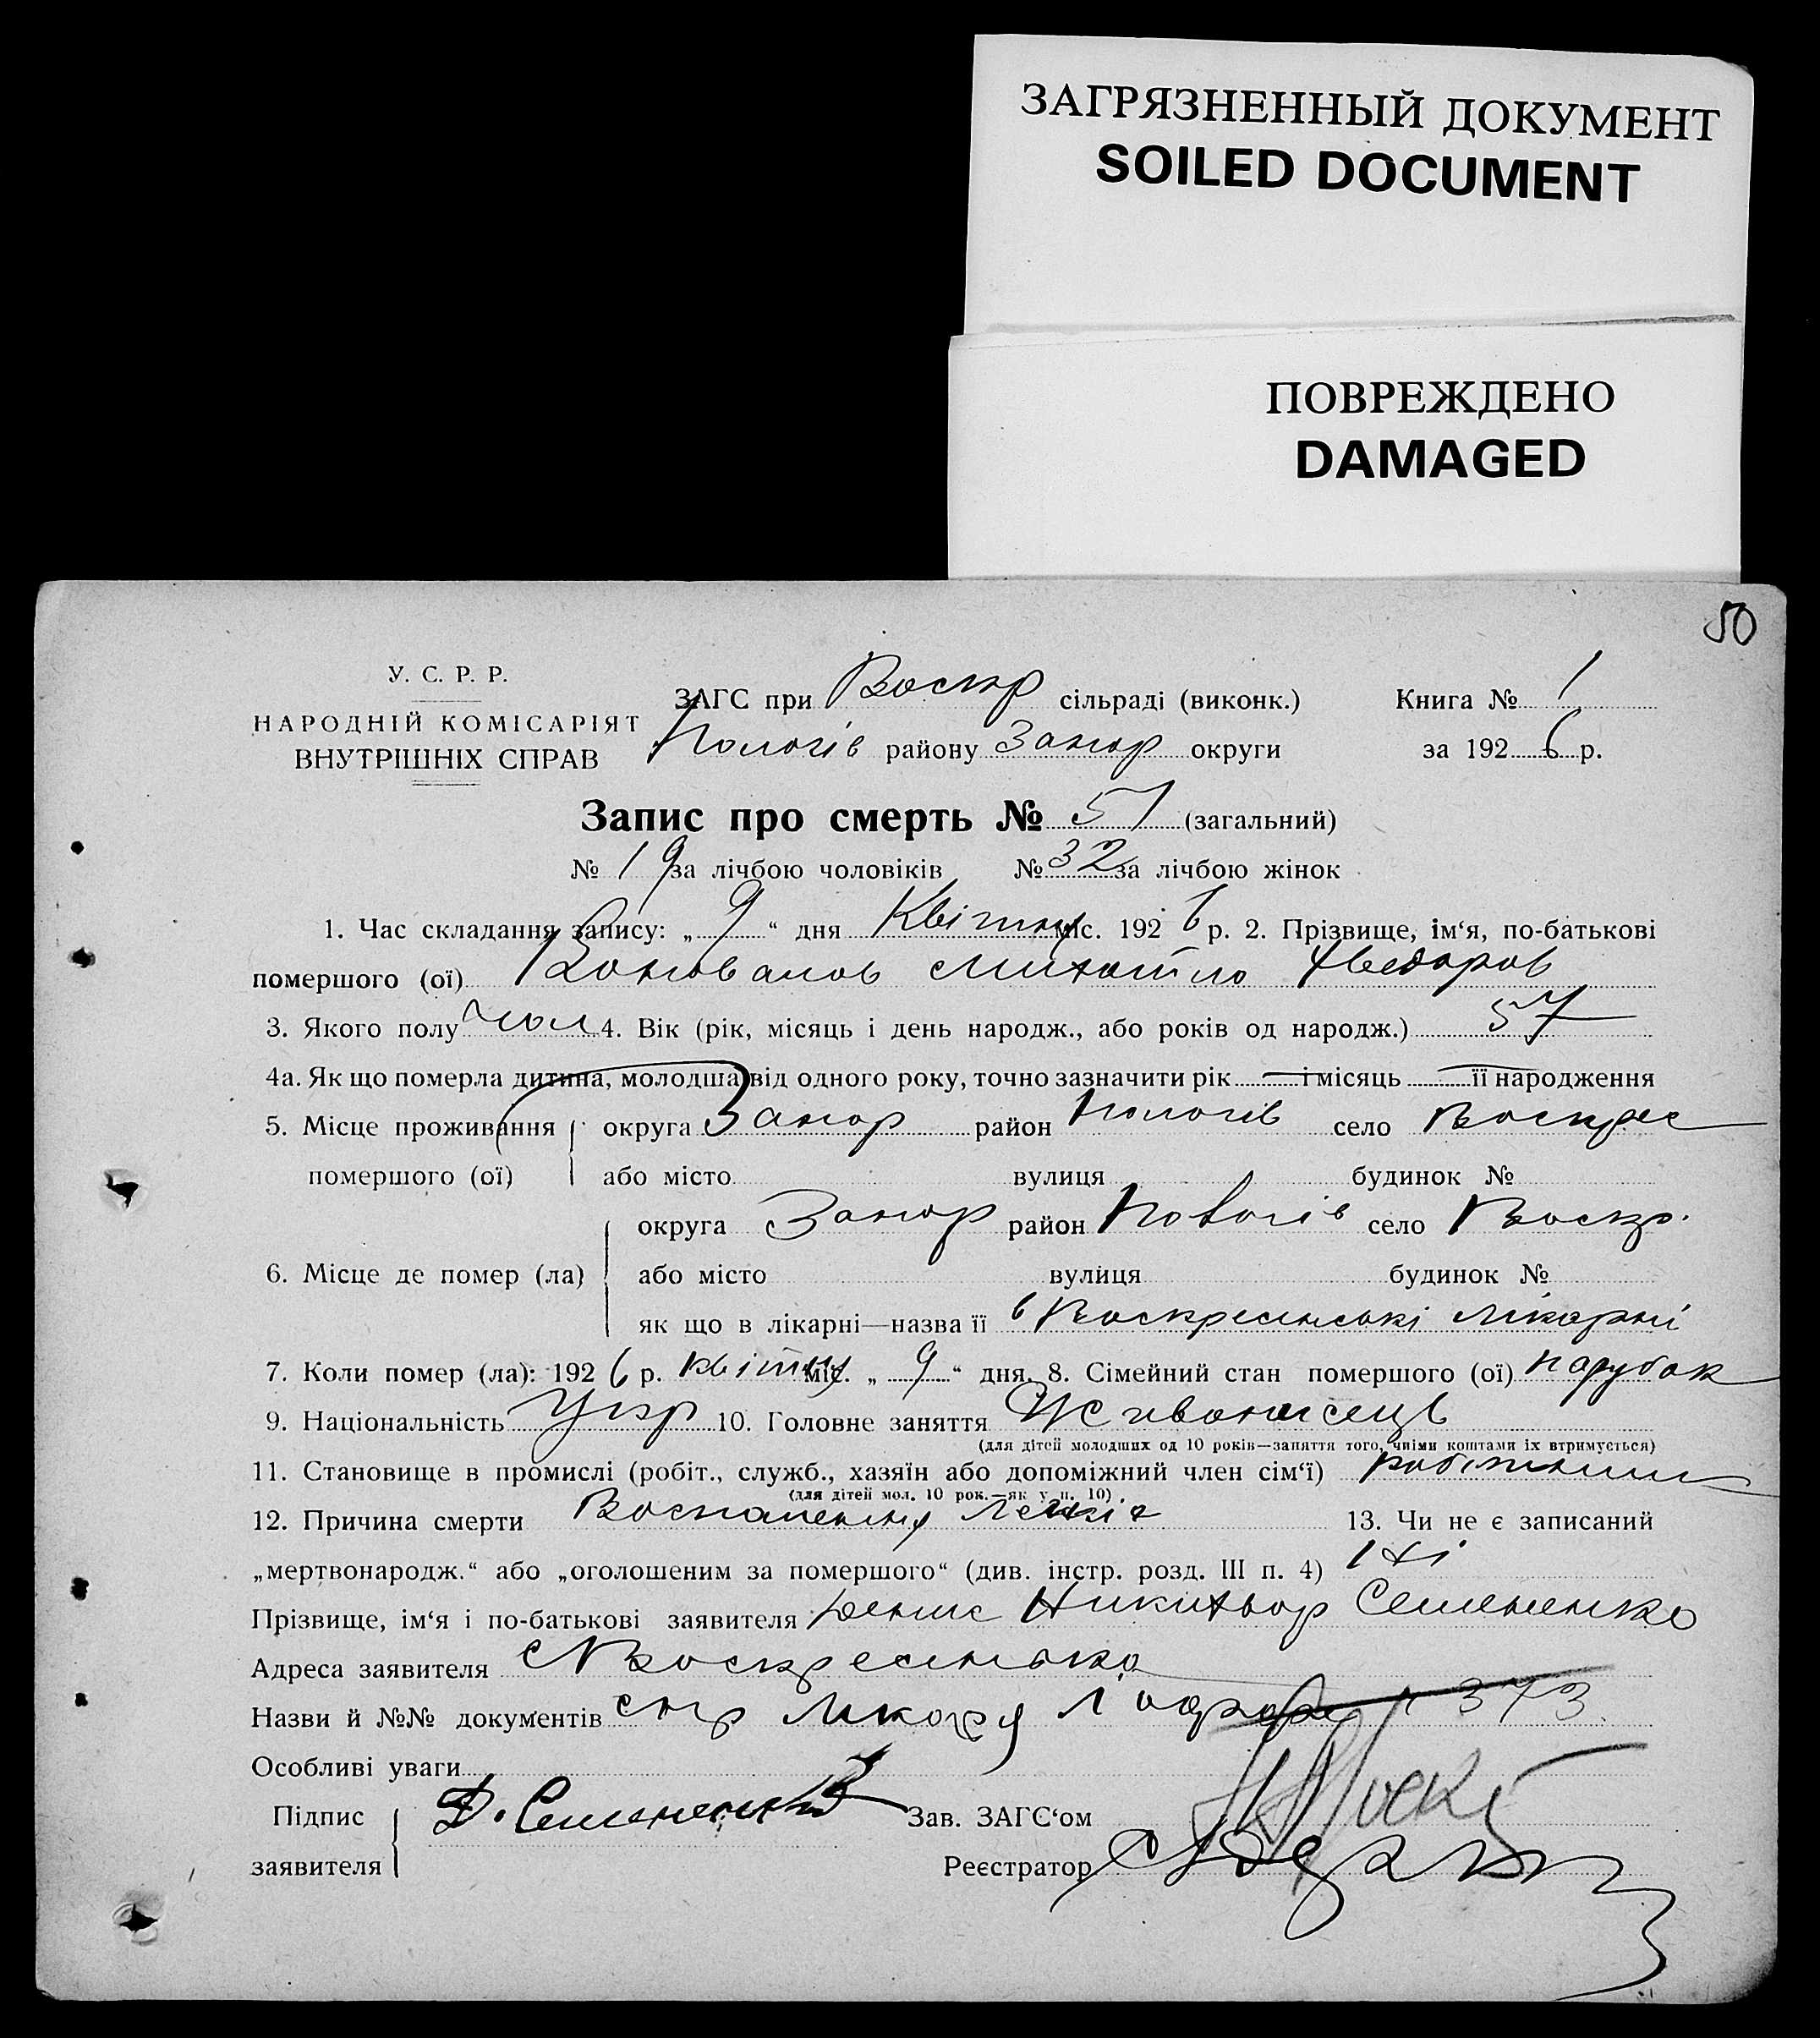 ЗАГРЯЗНЕННЫЙ ДОКУМЕНТ
SOILED DOCUMENT
ПОВРЕЖДЕНО
DAMAGED
50
У. С. Р. Р.
НАРОДНІЙ КОМІСАРІЯТ
ВНУТРІШНІХ СПРАВ
ЗАГС при Воскр сільраді (виконк.) Книга № 1
Пологів району Запор округи за 1926 р.
Запис про смерть № 51 (загальний)
№ 19 за лічбою чоловіків № 32 за лічбою жінок
1. Час складання запису: „ 9 “ дня Квітня міс. 1926 р. 2. Прізвище, ім‘я, по-батькові
помершого (ої) Коновалов Михайло Федоров
3. Якого полу чол 4. Вік (рік, місяць і день народж., або років од народж.) 57
4а. Як що померла дитина, молодша від одного року, точно зазначити рік — і місяць — її народження
5. Місце проживання округа Запор район Пологів село Воскрес
помершого (ої) або місто вулиця будинок №
округа Запор район Пологів село Воскр.
6. Місце де помер (ла) або місто вулиця будинок №
як що в лікарні—назва її в Воскресенські лікарні
7. Коли помер (ла): 1926 р. квітня міс. „ 9 “ дня. 8. Сімейний стан помершого (ої) парубок
9. Національність Укр 10. Головне заняття Живописець
(для дітей молодших од 10 років—заняття того, чиїми коштами їх втримується)
11. Становище в промислі (робіт., служб., хазяїн або допоміжний член сім‘ї) робітник
(для дітей мол. 10 рок.—як у п. 10)
12. Причина смерти Воспалення Легкіх 13. Чи не є записаний
„мертвонародж.“ або „оголошеним за помершого“ (див. інстр. розд. III п. 4) Ні
Прізвище, ім‘я і по-батькові заявителя Денис Никифор Семененко
Адреса заявителя с Воскресенька
Назви й №№ документів Спр Лікаря 373
Особливі уваги
Підпис Д. Семененко Зав. ЗАГС‘ом
заявителя Реєстратор